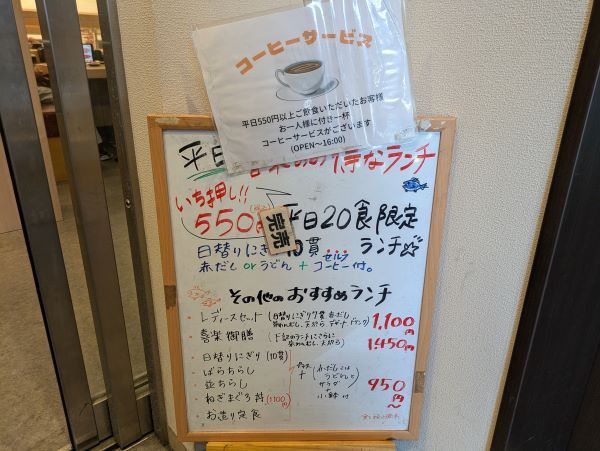 コーヒーサービス
平日550円以上ご飲食いただいたお客様
お一人様に付き一杯
コーヒーサービスがございます
(OPEN~16:00)
平日 お得なランチ
いち押し!!
550円 平日20食限定
完売
ランチ☆
日替りにぎり10貫
セルフ
赤だし or うどん + コーヒー付。
その他のおすすめランチ
レディースセット (日替りにぎり7貫 赤だし 1,100円
茶わんむし、天ぷら デザート ドリンク)
喜楽御膳 (下記のランチにさらに 1,450円
茶わんむし、天ぷら)
日替りにぎり (10貫)
ばらちらし
並ちらし
ねぎまぐろ丼 (1100円)
お造り定食
+ (赤だし又は
うどんと
サラダ
小鉢付
950円~